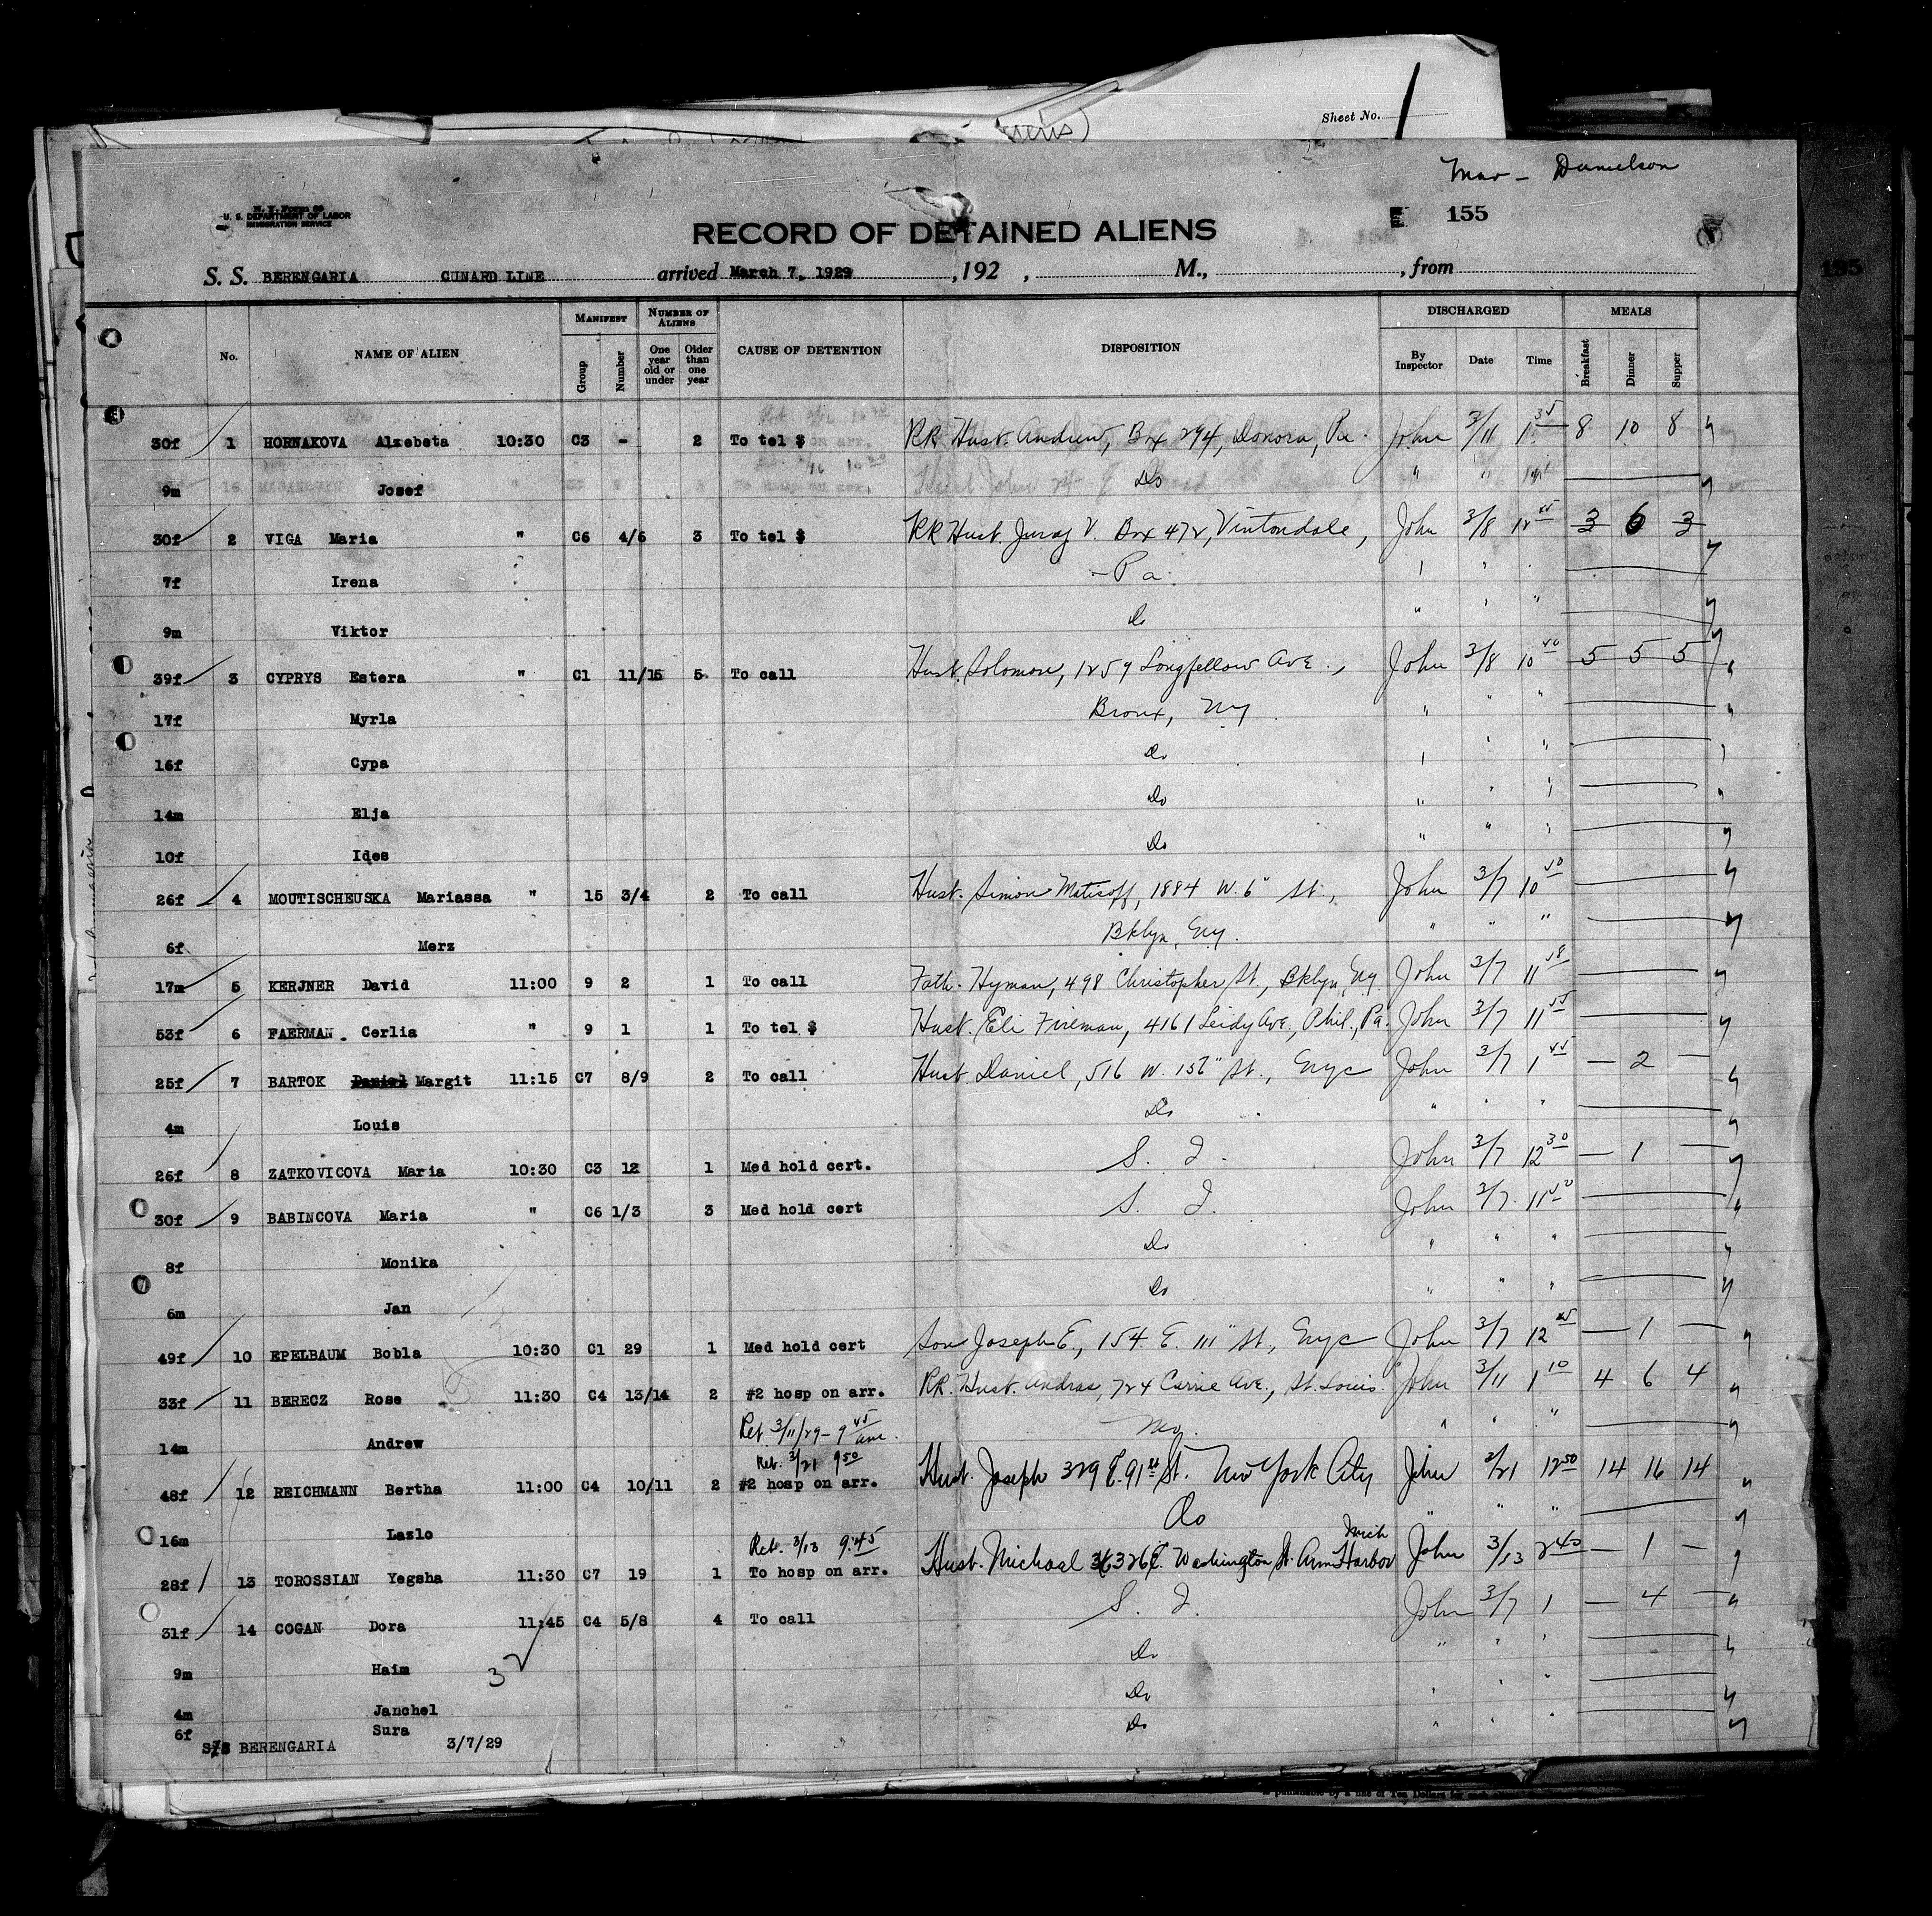 Sheet No. 1
Danielson
N. Y. Form 99
U. S. DEPARTMENT OF LABOR
IMMIGRATION SERVICE
155
RECORD OF DETAINED ALIENS
S. S. BERENGARIA CUNARD LINE arrived March 7, 1929 , 192 , M., , from
No. NAME OF ALIEN MANIFEST NUMBER OF ALIENS CAUSE OF DETENTION DISPOSITION DISCHARGED MEALS
Group Number One year old or under Older than one year By Inspector Date Time Breakfast Dinner Supper
30f 1 HORNAKOVA Alzebeta 10:30 C3 - 2 To tel $ RR Husb. Andrew, Box 294, Donora, Pa. John 3/11 1 35 8 10 8
9m Josef Do " "
30f 2 VIGA Maria " C6 4/6 3 To tel $ RR Husb. Juraj V. Box 472, Vintondale, John 3/8 12 45 3 6 3
7f Irena - Pa.
9m Viktor Do " " "
39f 3 CYPRYS Estera " C1 11/15 5 To call Husb. Solomon, 1259 Longfellow Ave., John 3/8 10 40 5 5 5
17f Myrla Bronx, NY " " "
16f Cypa Do " " "
14m Elja Do " " "
10f Ides Do " " "
26f 4 MOUTISCHEUSKA Mariassa " 15 3/4 2 To call Husb. Simon Matisoff, 1884 W. 6" St., John 3/7 10 50
6f Merz Bklyn, NY. " " "
17m 5 KERJNER David 11:00 9 2 1 To call Fath. Hyman, 498 Christopher St., Bklyn, NY John 3/7 11 58
53f 6 FAERMAN Cerlia " 9 1 1 To tel $ Husb. Eli Fireman, 4161 Leidy Ave., Phil., Pa. John 3/7 11 55
25f 7 BARTOK Daniel Margit 11:15 C7 8/9 2 To call Husb. Daniel, 516 W. 152" St., NYC John 3/7 1 45 — 2 —
4m Louis Do " " "
26f 8 ZATKOVICOVA Maria 10:30 C3 12 1 Med hold cert. S. I. John 3/7 12 30 — 1 —
30f 9 BABINCOVA Maria " C6 1/3 3 Med hold cert S. I. John 3/7 11 50
8f Monika Do " " "
6m Jan Do " " "
49f 10 EPELBAUM Bobla 10:30 C1 29 1 Med hold cert Son Joseph E., 154 E. 111" St., NYC John 3/7 12 45 — 1 —
33f 11 BERECZ Rose 11:30 C4 13/14 2 #2 hosp on arr. RR. Husb. Andras, 724 Carrie Ave., St. Louis John 3/11 1 10 4 6 4
14m Andrew Ret. 3/11/29 - 9 45 am. Mo. " " "
Ret. 3/21 9 50
48f 12 REICHMANN Bertha 11:00 C4 10/11 2 #2 hosp on arr. Husb. Joseph 329 E. 91st St. New York City John 3/21 12 50 14 16 14
16m Lazlo Do " " "
Ret. 3/13 9:45 Mich
28f 13 TOROSSIAN Yegsha 11:30 C7 19 1 To hosp on arr. Husb. Michael 326 E. Washington St. Ann Harbor John 3/13 2 40 — 1 —
31f 14 COGAN Dora 11:45 C4 5/8 4 To call S. I. John 3/7 1 — 4 —
9m Haim 3 Do " " "
4m Janchel Do
6f Sura Do
S/S BERENGARIA 3/7/29